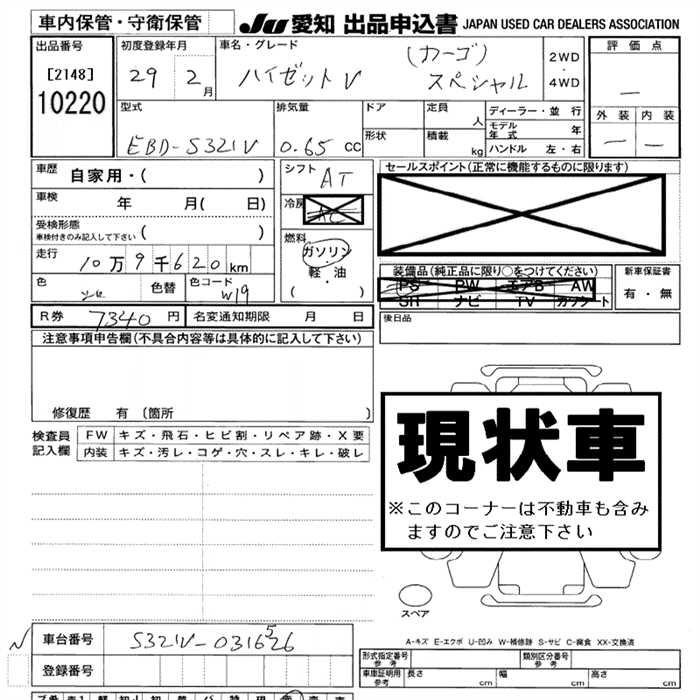 車内保管・守衛保管
JU 愛知 出品申込書 JAPAN USED CAR DEALERS ASSOCIATION
出品番号
[2148]
10220
初度登録年月
29 2月
車名・グレード
ハイゼットV (カーゴ) スペシャル
2WD
・
4WD
評価点
—
外装 内装
— —
型式
EBD-S321V
排気量
0.65 cc
ドア
形状
定員 人
積載 kg
ディーラー・並行
モデル年式 年
ハンドル 左・右
車歴 自家用・( )
車検 年 月( 日)
受検形態
車検付きのみ記入して下さい ( )
走行 10万9千620km
色
色替
色コード W19
シフト AT
冷房 AC
燃料
ガソリン
・
軽・油
( )
セールスポイント(正常に機能するものに限ります)
装備品(純正品に限り○をつけてください)
PS PW エアB AW
SR ナビ TV カセット
新車保証書
有・無
R券 7340円 名変通知期限 月 日
後日品
注意事項申告欄(不具合内容等は具体的に記入して下さい)
修復歴 有 (箇所 )
検査員記入欄
FW キズ・飛石・ヒビ割・リペア跡・X要
内装 キズ・汚レ・コゲ・穴・スレ・キレ・破レ
現状車
※このコーナーは不動車も含み
ますのでご注意下さい
スペア
A-キズ E-エクボ U-凹み W-補修跡 S-サビ C-腐食 XX-交換済
車台番号 S321V-0316526
5
登録番号
形式指定番号
参考
類別区分番号
参考
車庫証明用
参考
長さ 幅 高さ